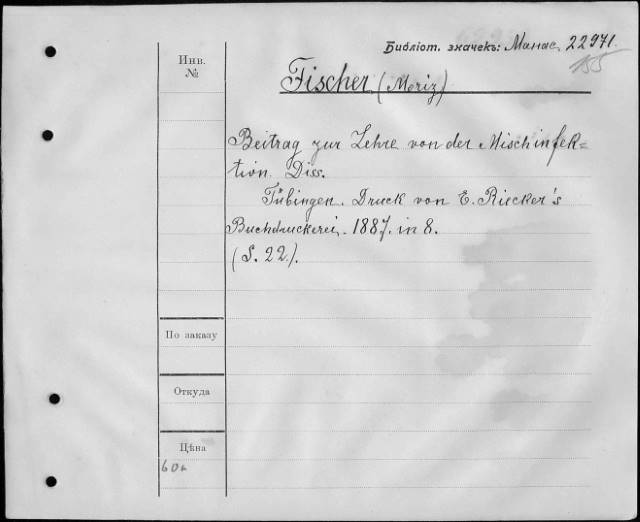 Библіот. значекъ: Манас. 22971.
155
Инв.
№
Fischer (Moriz)
Beitrag zur Lehre von der Mischinfek=
tion. Diss.
Tübingen. Druck von E. Riecker's
Buchdruckerei. 1887. in 8.
(S. 22.).
По заказу
Откуда
Цѣна
60к